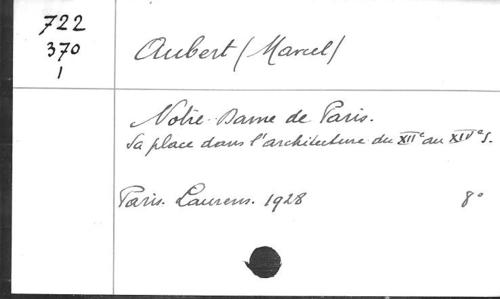 722
370
1
Aubert (Marcel)
Notre-Dame de Paris.
Sa place dans l'architecture du XIIe au XIVe s.
Paris. Laurens. 1928 8°